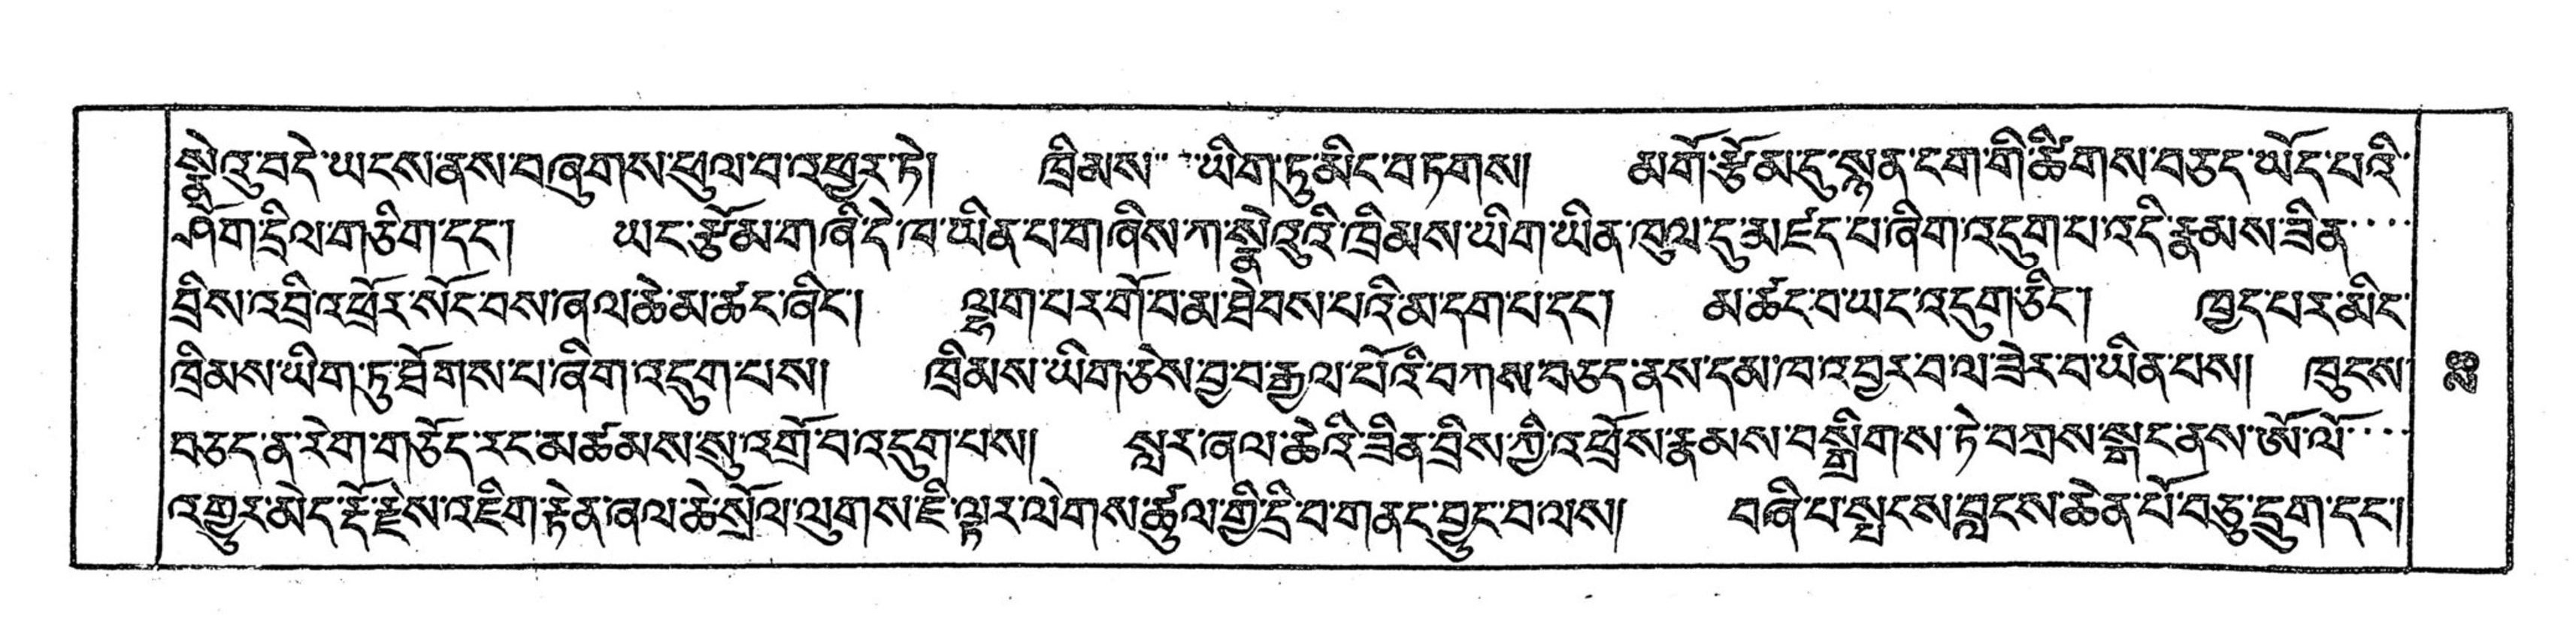 སྣེའུ་བདེ་ཡངས་ནས་བཞུགས་ཕུལ་བ་འཕྱར་ཏེ། ཁྲིམས་ཡིག་ཏུ་མིང་བཏགས། མགོ་རྩོམ་དུ་སྙན་ངག་གི་ཚིགས་བཅད་ཡོད་པའི་
ཤོག་དྲིལ་གཅིག་དང་། ཡང་རྩོམ་གཞི་དེ་ཁ་ཡིན་པ་གཉིས་ཀ་སྣེའུའི་ཁྲིམས་ཡིག་ཡིན་ཁུལ་དུ་མཛད་པ་ཞིག་འདུག་པ་འདི་རྣམས་ཟིན་
བྲིས་འབྲི་འཕྲོར་སོང་བས་ཞལ་ཆེ་མ་ཚང་ཞིང་། ལྷག་པར་གོ་བ་མ་ཐེབས་པའི་མ་དག་པ་དང་། མ་ཚང་བ་ཡང་འདུག་ཅིང་། ཁྱད་པར་མིང་
ཁྲིམས་ཡིག་ཏུ་ཐོགས་པ་ཞིག་འདུག་པས། ཁྲིམས་ཡིག་ཅེས་བྱ་བ་རྒྱལ་པོའི་བཀས་བཅད་ནས་དམ་ཁ་འབྱར་བ་ལ་ཟེར་བ་ཡིན་པས། ཁུངས་
བཅད་ན་རེག་གཅོད་རང་མཚམས་སུ་འགྲོ་བ་འདུག་པས། སླར་ཞལ་ཆེའི་ཟིན་བྲིས་ཀྱི་འཕྲོས་རྣམས་བསྒྲིགས་ཏེ་བཀྲས་སྒང་ནས་ཨོ་ལོ་
འགྱུར་མེད་རྡོ་རྗེས་འཇིག་རྟེན་ཞལ་ཆེ་སྲོལ་ལུགས་ཇི་ལྟར་ལེགས་ཚུལ་གྱི་དྲི་བ་གནང་བྱུང་བ་ལས། བཞི་པ་སྤངས་བླངས་ཆེན་པོ་བཅུ་དྲུག་དང་།